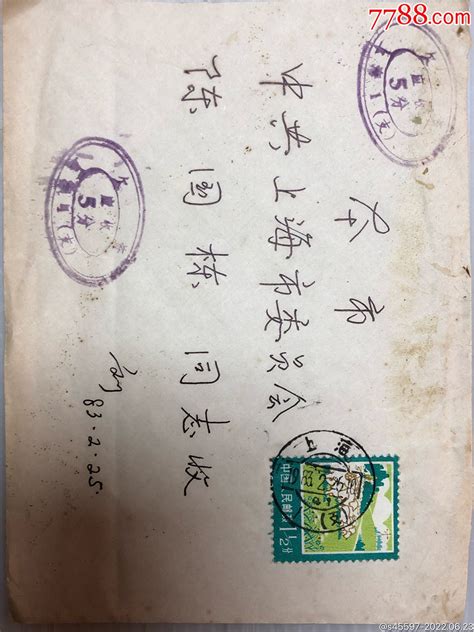 7788.com
本市
中共上海市委员会
陈国栋同志收
83.2.25.
5分
5分
上海
中国人民邮政
1½分
@s45597-2022.06.23